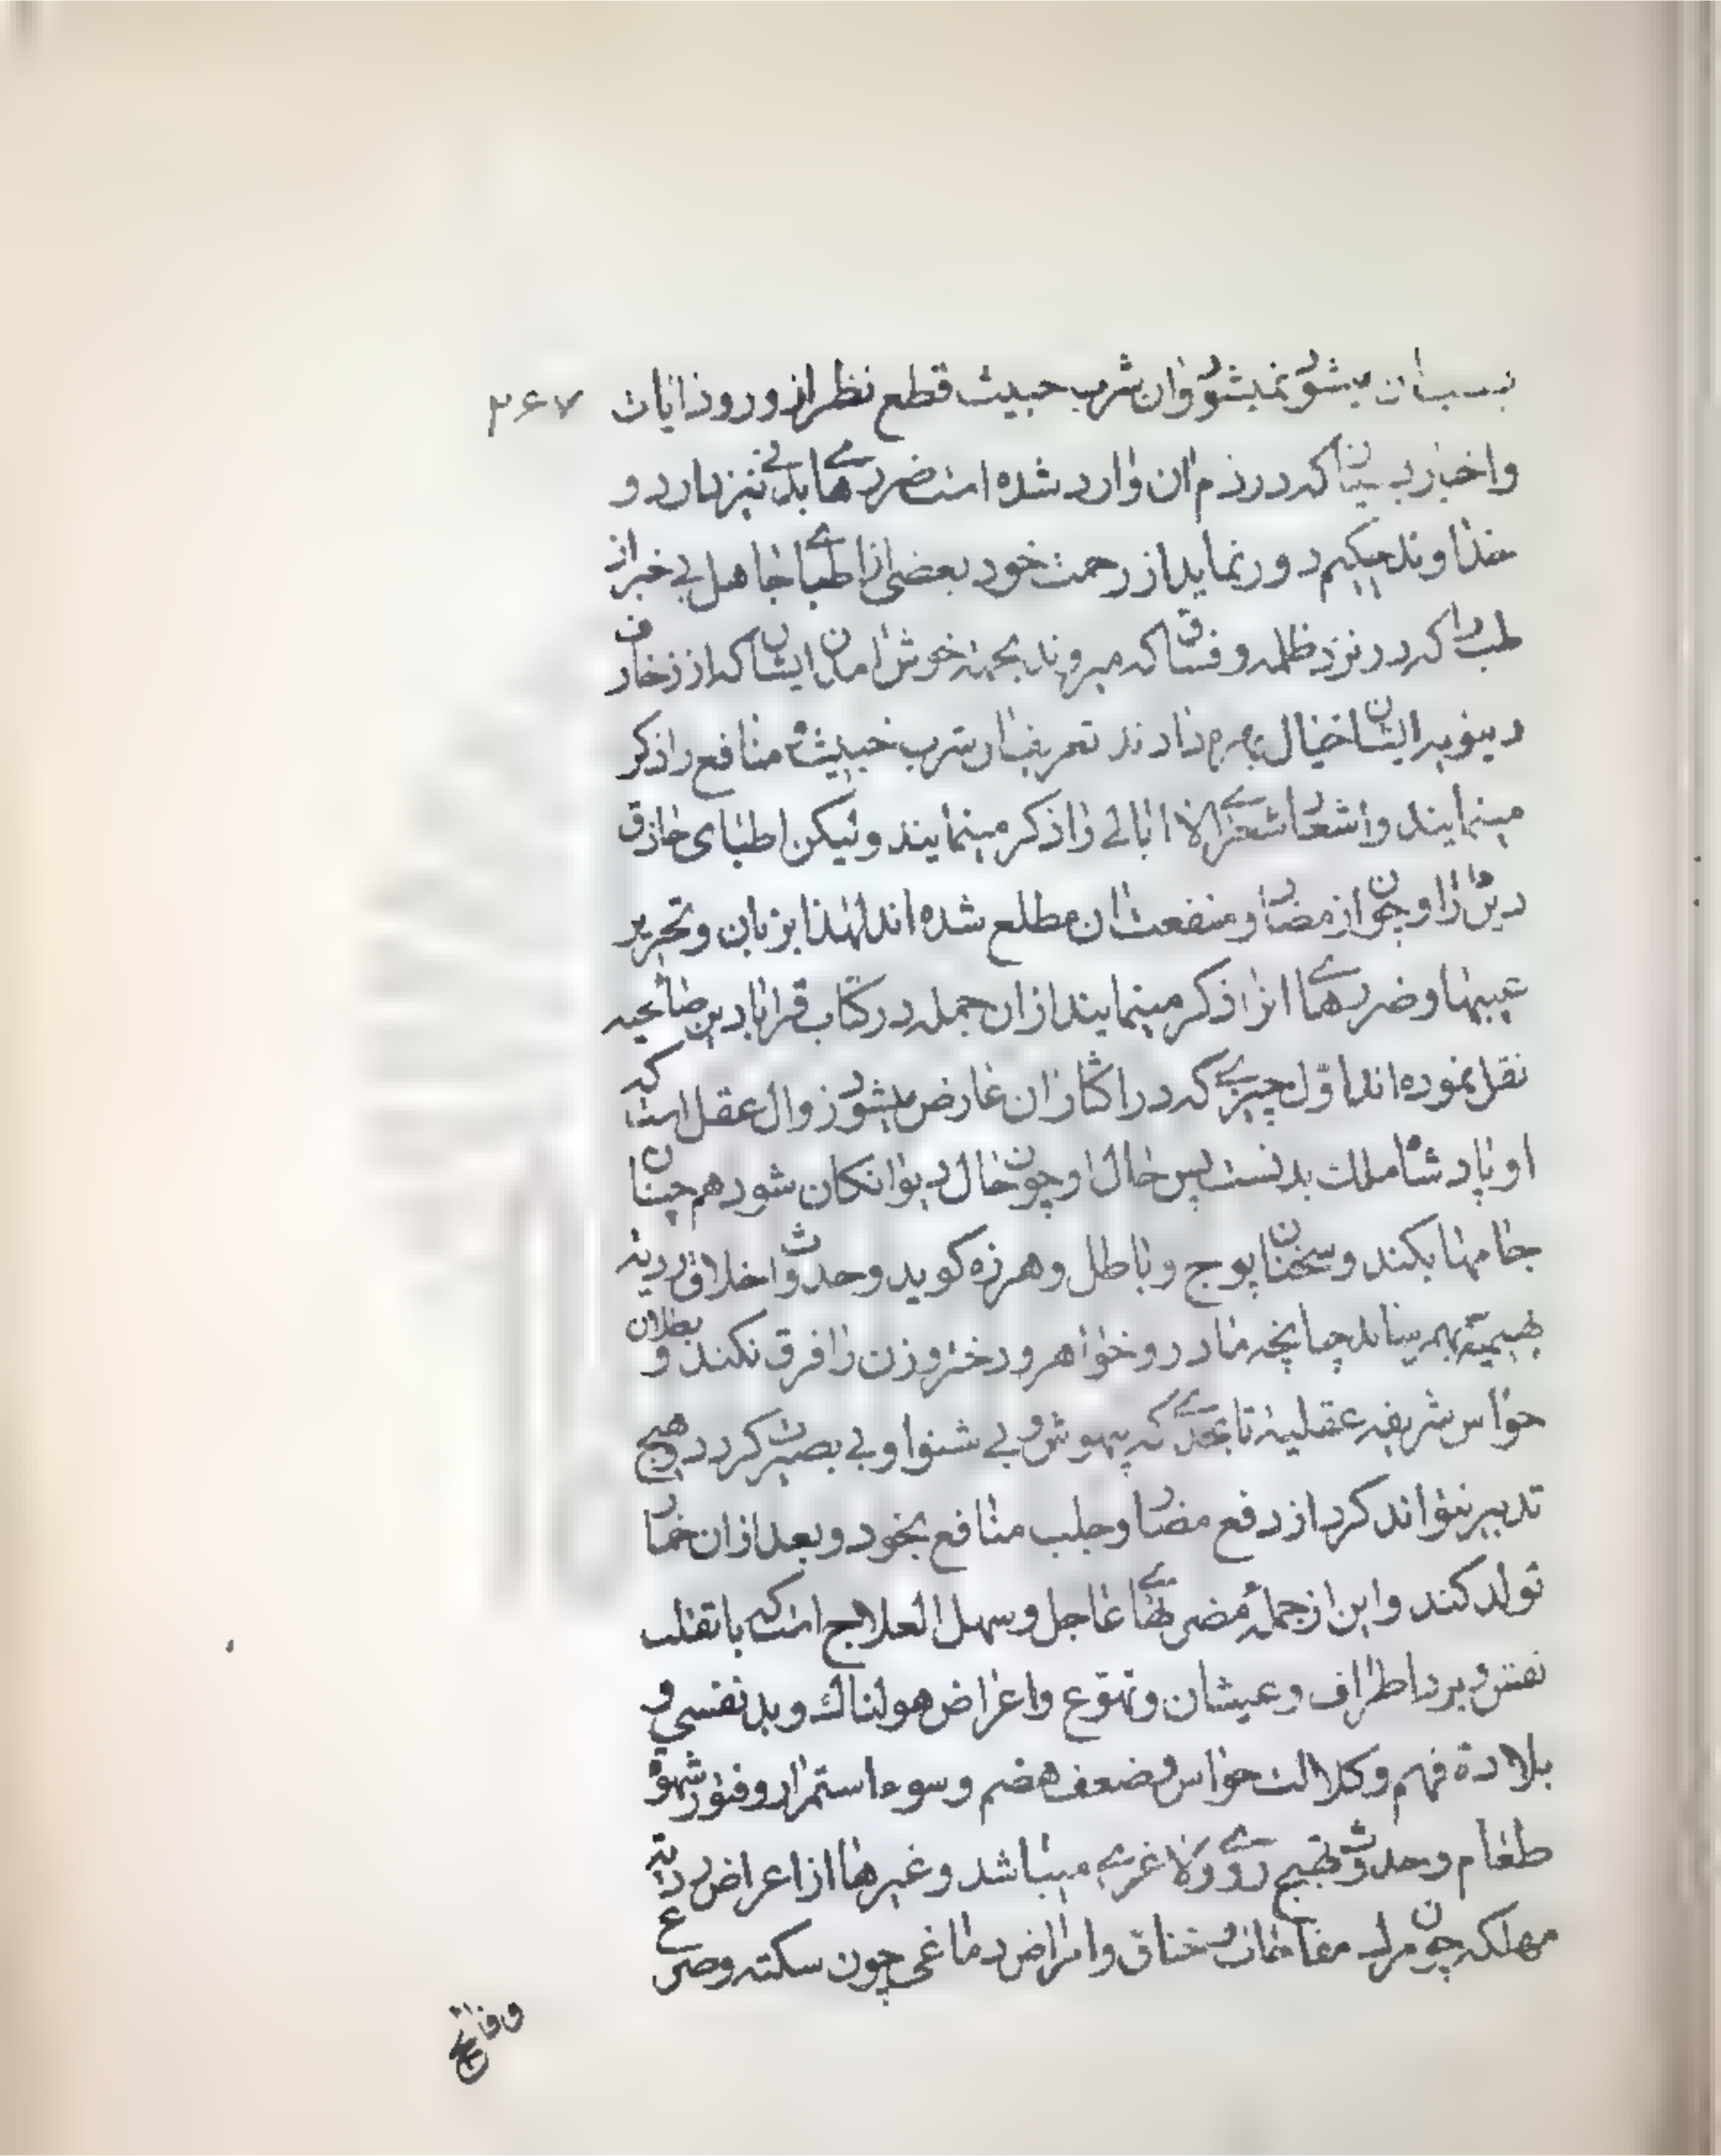 بسبب آن میشود نمیشود وآن شرب خبیث قطع نظر از ورود آیات ۲۶۷
واخبار بسیار که در ذم آن وارد شده است ضررهای بدنی نیز دارد و
خداوند حکیم دور نماید از رحمت خود بعضی از اطبای جاهل بی خبر از
طب را که در نزد ظلمه و فساق که میروند بجهة خوش امدن ایشان که از زخارف
دنیویه ایشان خیال بهره دارند تعریف آن شرب خبیث و منافع را ذکر
مینمایند و اشعار شعرای لا ابالی را ذکر مینمایند ولیکن اطبای حاذق
دین دار چون از مضار و منفعت آن مطلع شده اند لهذا بزبان و تحریر
عیبها و ضررهای آنرا ذکر مینمایند از ان جمله در کتاب قرابادین صالحیه
نقل نموده اند اوّل چیزی که در اکثار آن عارض میشود زوال عقل است که
او پادشاه ملک بدنست پس حال او چون حال دیوانکان شود هم چنان
جامها بکند و سخنان پوچ و باطل و هرزه کوید و حدوث اخلاق ردیه
بهیمیّه بهمرساند چنانچه مادر و خواهر و دختر و زن را فرق نکند و بطلان
حواس شریفه عقلیه تا بحدّی که بیهوش و بی شنوا و بی بصیرت کردد هیچ
تدبیر نتواند کرد از دفع مضار و جلب منافع بخود و بعد از ان خمار
تولد کند و این از جملهٔ مضرتهای عاجل و سهل العلاج است که با تقلب
نفس و برد اطراف و غیشان و تهوّع و اعراض هولناک و بد نفسی و
بلادة فهم و کلالت حواس و ضعف هضم و سوء استمرار و فتور شهوة
طعام و حدوث تهیج روی و لاغری میباشد و غیرها از اعراض ردیّه
مهلکه چون مفاجات و خناق و امراض دماغی چون سکته و صرع
و فالج